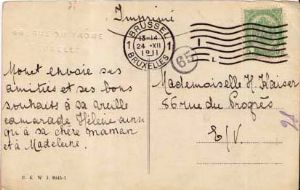 Imprimé
BRUSSEL
13-14
24-XII
1911
BRUXELLES
1 1
65
Monet envoie ses
amitiés et ses bons
souhaits à sa vieille
camarade Hélène ainsi
qu'à sa chère maman
et à Madeleine.
Mademoiselle H. Kaiser
56 rue du Progrès
E/V.